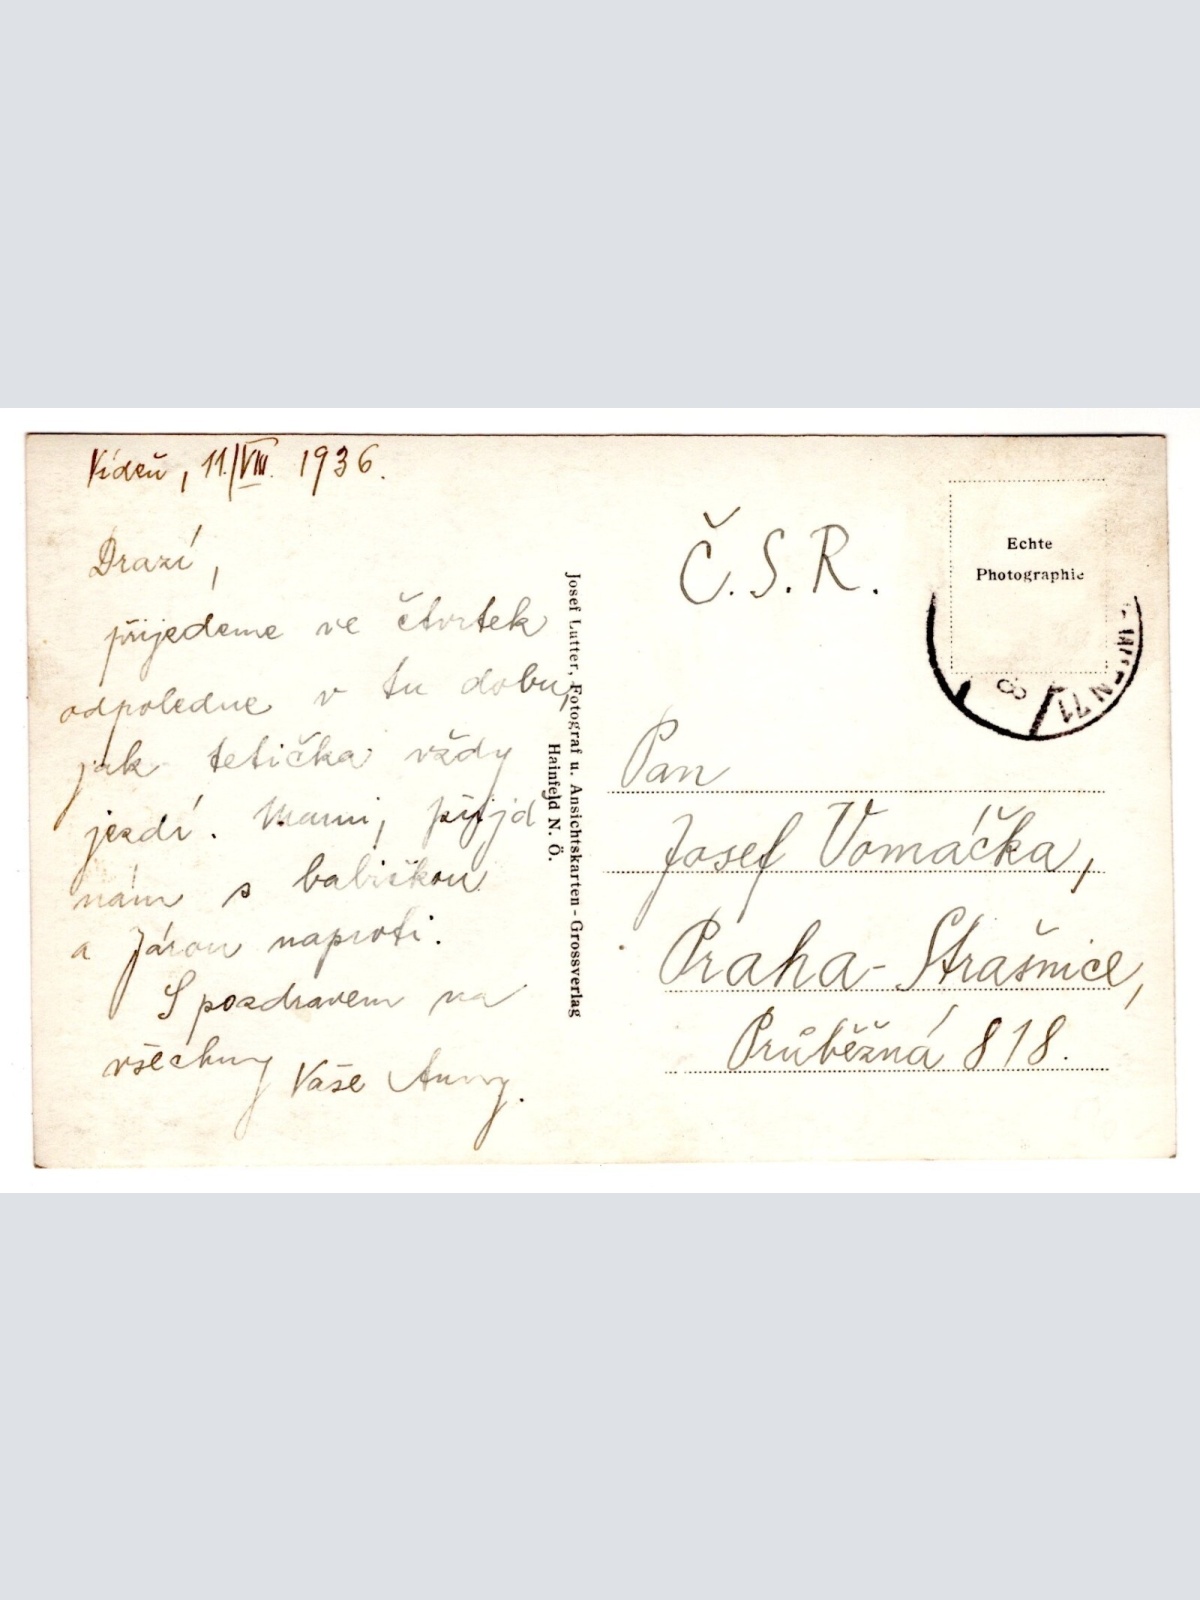 Vídeň, 11./VIII. 1936.
Drazí,
přijedeme ve čtvrtek
odpoledne v tu dobu,
jak tetička vždy
jezdí. Mami, přijd
nám s babičkou
a Járou naproti.
S pozdravem na
všechny Vaše Anny.
Josef Lutter, Fotograf u. Ansichtskarten-Grossverlag
Hainfeld N. Ö.
Č. S. R.
Echte
Photographie
WIEN 71
8
Pan
Josef Vomáčka,
Praha-Strašnice,
Průběžná 818.